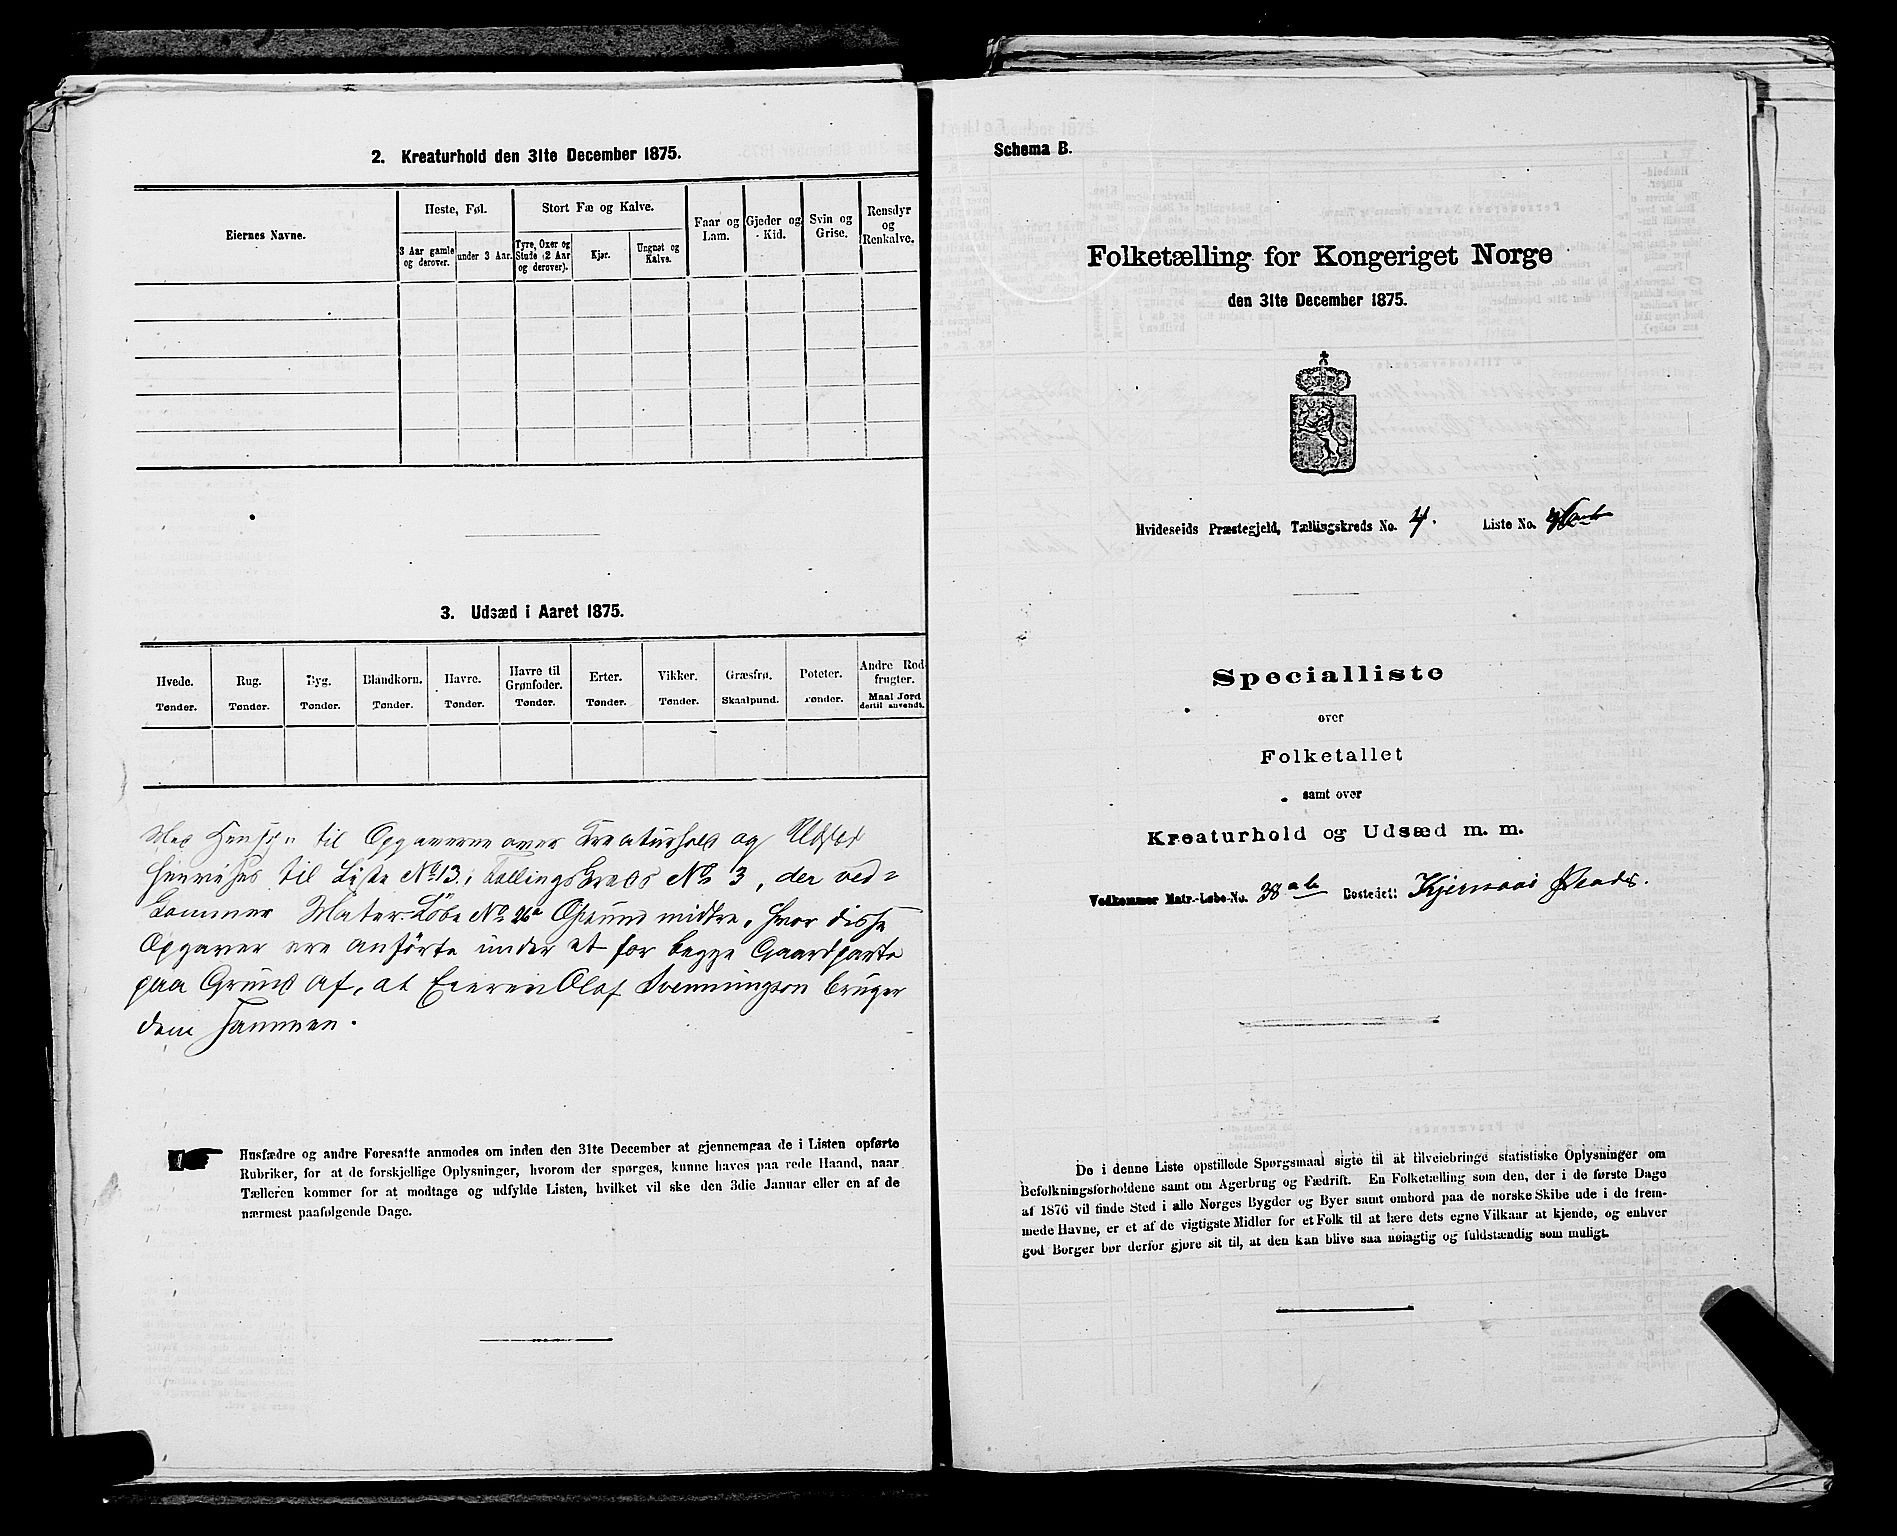 2. Kreaturhold den 31te December 1875.
Eiernes Navne.
Heste, Føl.
3 Aar gamle og derover.
under 3 Aar.
Stort Fæ og Kalve.
Tyre, Oxer og Stude (2 Aar og derover).
Kjør.
Ungnøt og Kalve.
Faar og Lam.
Gjeder og Kid.
Svin og Grise.
Rensdyr og Renkalve.
3. Udsæd i Aaret 1875.
Hvede. Tønder.
Rug. Tønder.
Byg. Tønder.
Blandkorn. Tønder.
Havre. Tønder.
Havre til Grønfoder. Tønder.
Erter. Tønder.
Vikker. Tønder.
Græsfrø. Skaalpund.
Poteter. Tønder.
Andre Rodfrugter. Maal Jord dertil anvendt.
Med Hensyn til Opgaverne over Kreaturhold og Udsæd
henvises til Liste No 13, Tællingskreds No 3, der ved-
kommer Mater.-Løbe No 26a Grund midtre, hvor disse
Opgaver ere anførte under et for begge Gaardparte
paa Grund af, at Eieren Olaf Svenningson bruger
dem sammen.
Husfædre og andre Foresatte anmodes om inden den 31te December at gjennemgaa de i Listen opførte
Rubriker, for at de forskjellige Oplysninger, hvorom der spørges, kunne haves paa rede Haand, naar
Tælleren kommer for at modtage og udfylde Listen, hvilket vil ske den 3die Januar eller en af de
nærmest paafølgende Dage.
Schema B.
Folketælling for Kongeriget Norge
den 31te December 1875.
Hvideseids Præstegjeld, Tællingskreds No. 4. Liste No.
Specialliste
over
Folketallet
samt over
Kreaturhold og Udsæd m. m.
Vedkommer Matr.-Løbe-No. 38 a b Bostedet: Kjernaas
De i denne Liste opstillede Spørgsmaal sigte til at tilveiebringe statistiske Oplysninger om
Befolkningsforholdene samt om Agerbrug og Fædrift. En Folketælling som den, der i de første Dage
af 1876 vil finde Sted i alle Norges Bygder og Byer samt ombord paa de norske Skibe ude i de frem-
mede Havne, er et af de vigtigste Midler for et Folk til at lære dets egne Vilkaar at kjende, og enhver
god Borger bør derfor gjøre sit til, at den kan blive saa nøiagtig og fuldstændig som muligt.